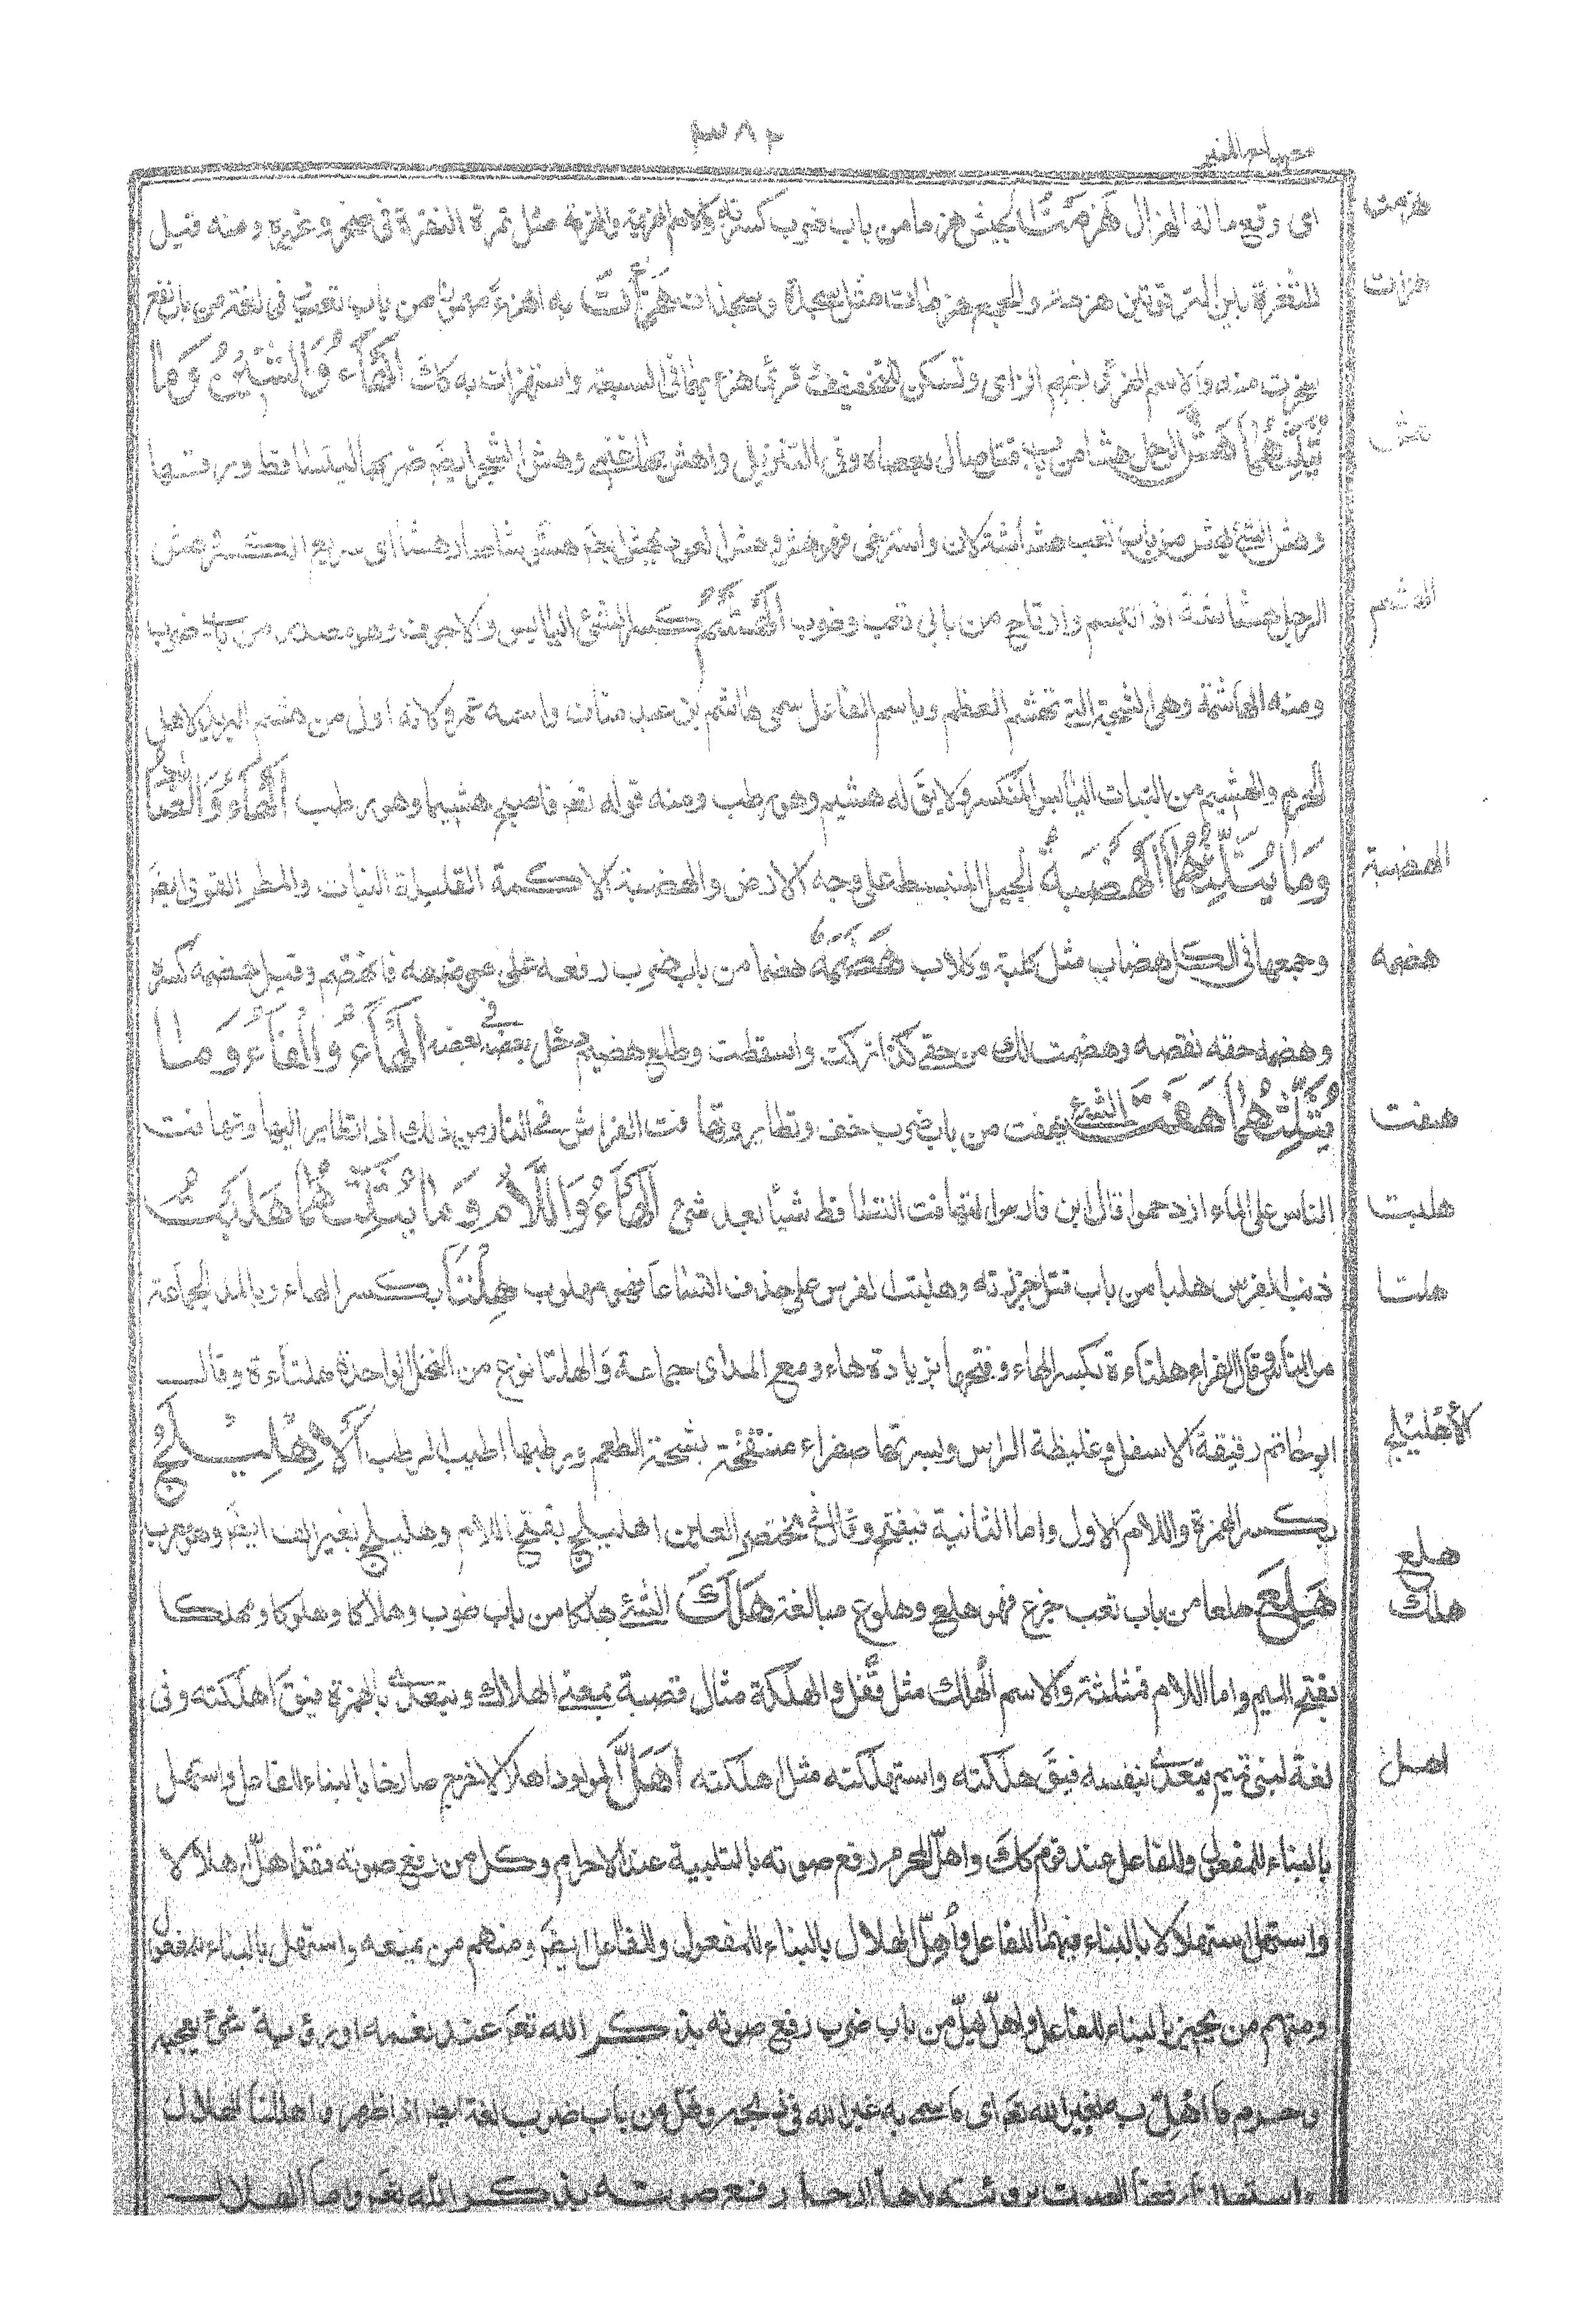 مصباح المنير
٣٨٢
اى وقع ماله الهزال هَزَمْتُ الجيش هزما من باب ضرب كسرته والاسم الهزيمة والهزمة مثل تمرة النقرة فى صخر وغيره ومنه قيل
هزمت
للنقرة بين الترقوتين هزمة والجمع هزمات مثل سجدة وسجدات هَزَأْتُ به اهزء مهموز من باب تعب فى لغة من باب نفع
هزات
سخرت منه والاسم الهزء بضم الزاى وتسكن للتخفيف قرئ هزء بهما فى السبعة واستهزات به كك اَلْهَآءُ وَالشِّيْنُ وَمَا
يُثَلِّثُهُمَا هَشَّ الرجل هشا من باب قتل صال بعصاه وفى التنزيل واهش بها على غنمى وهش الشجرة ايضا ضربها ليتساقط ورقها
هش
وهش الشئ يهش من باب تعب هشاشة لان واسترخى فهو هش وهش العود يهش ايضا هشوشا صار هشا اى سريع الكسر وهش
الرجل هشاشة اذا تبسم وارتاح من بابى تعب وضرب اَلْهَشْمُ كسر الشئ اليابس والاجوف وهو مصدر من باب ضرب
الهشم
ومنه الهاشمة وهى الشجة التى تهشم العظم وباسم الفاعل سمى هاشم بن عبد مناف واسمه عمرو لانه اول من هشم الثريد لاهل
الحرم والهشيم من النبات اليابس المتكسر ولا يق له هشيم وهو رطب ومنه قوله تعم فاصبح هشيما وهو رطب اَلْهَآءُ وَالضَّادُ
وَمَا يُثَلِّثُهُمَا اَلْهَضْبَةُ الجبل المنبسط على وجه الارض والهضبة الاكمة القليلة النبات والمطر القوى ايضا
الهضبة
وجمعها فى الكل هضاب مثل كلبة وكلاب هَضَمَهُ هضما من باب ضرب دفعه على موضعه فانهضم وقيل هضمه كسره
هضمه
وهضمه حقه نقصه وهضمت لك من حقى كذا تركت واسقطت وطلع هضيم دخل بعضه فى بعضه اَلْهَآءُ وَالْفَآءُ وَمَا
يُثَلِّثُهُمَا هَفَتَ الشئ يهفت من باب ضرب خف وتطاير وتهافت الفراش فى النار من ذلك اذا تطاير اليها وتهافت
هفت
الناس على الماء ازدحموا قال ابن فارس التهافت التساقط شيئا بعد شئ اَلْهَآءُ وَاللَّامُ وَمَا يُثَلِّثُهُمَا هَلَبْتُ
هلبت
ذنب الفرس هلبا من باب قتل جززته وهلبت الفرس على حذف اتساعا فهو مهلوب هِلْتَا بكسر الهاء وبالمد الجماعة
هلتا
من الناس وقال الفراء هلتاءة بكسر الهاء وفتحها بزيادة هاء ومع المد اى جماعة والهلتا نوع من النخل الواحدة هلتاءة وقال
ابو حاتم رقيقة الاسفل وغليظة الراس وبسرتها صفراء منتفخة بشعة الطعم ورطبها اطيب الرطب اَلْاِهْلِيْلَجُ
الاِهْلِيْلج
بكسر الهمزة واللام الاول واما الثانية فتفتح وقال فى مختصر العين اهليلج بفتح اللام وهليلج بغير الف ايضا وهو معرب
هَلِعَ هلعا من باب تعب جزع فهو هلع وهلوع مبالغة هَلَكَ الشئ هلكا من باب ضرب وهلاكا وهلوكا ومهلكا
هلع
هلك
بفتح الميم واما اللام فمثلثة والاسم الهُلك مثل قُفل والهلكة مثال قصبة بمعنى الهلاك ويتعدى بالهمزة فيق اهلكته وفى
لغة لبنى تميم يتعدى بنفسه فيق هلكته واستهلكته مثل اهلكته اَهَلَّ المولود اهلالا خرج صارخا بالبناء للفاعل واستهل
اهل
بالبناء للمفعول وللفاعل عند قوم كك واهلّ المحرم رفع صوته بالتلبية عند الاحرام وكل من رفع صوته فقد اهلّ اهلالا
واستهل استهلالا بالبناء فيهما للفاعل وأُهِلّ الهلال بالبناء للمفعول وللفاعل ايضا ومنهم من يمنعه واستهل بالبناء للمفعول
ومنهم من يجيز بالبناء للفاعل واهلّ يهلّ من باب ضرب رفع صوته بذكر الله تعم عند نعمه او رؤية شئ يعجبه
وحرم ما اُهِلّ به لغير الله تعم اى ما سمى به غير الله فى ذبحه وهل من باب ضرب لغة ايضا اذا ظهر واهللنا الهلال
واستهللناه رفعنا الصوت برؤيته واهل الرجل رفع صوته بذكر الله تعم واما الهلال